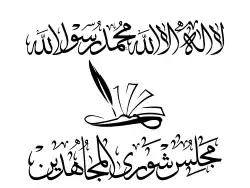 لا إله إلا الله محمد رسول الله
مجلس شورى المجاهدين